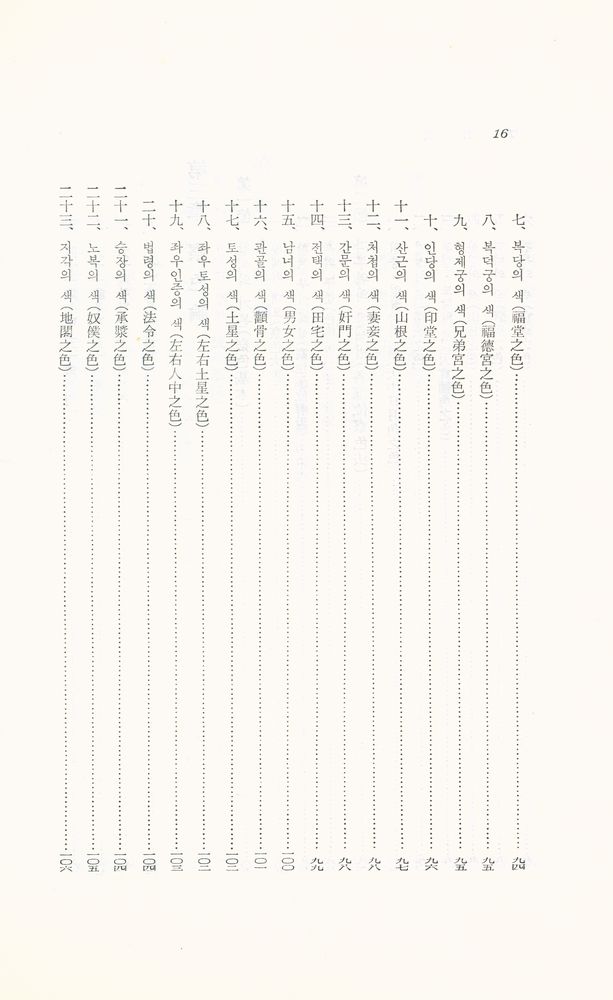 16
七、복당의 색(福堂之色)……九四
八、복덕궁의 색(福德宮之色)……九五
九、형제궁의 색(兄弟宮之色)……九五
十、인당의 색(印堂之色)……九六
十一、산근의 색(山根之色)……九七
十二、처첩의 색(妻妾之色)……九八
十三、간문의 색(奸門之色)……九八
十四、전택의 색(田宅之色)……九九
十五、남녀의 색(男女之色)……一〇〇
十六、관골의 색(顴骨之色)……一〇一
十七、토성의 색(土星之色)……一〇二
十八、좌우토성의 색(左右土星之色)……一〇二
十九、좌우인중의 색(左右人中之色)……一〇三
二十、법령의 색(法令之色)……一〇四
二十一、승장의 색(承漿之色)……一〇四
二十二、노복의 색(奴僕之色)……一〇五
二十三、지각의 색(地閣之色)……一〇六